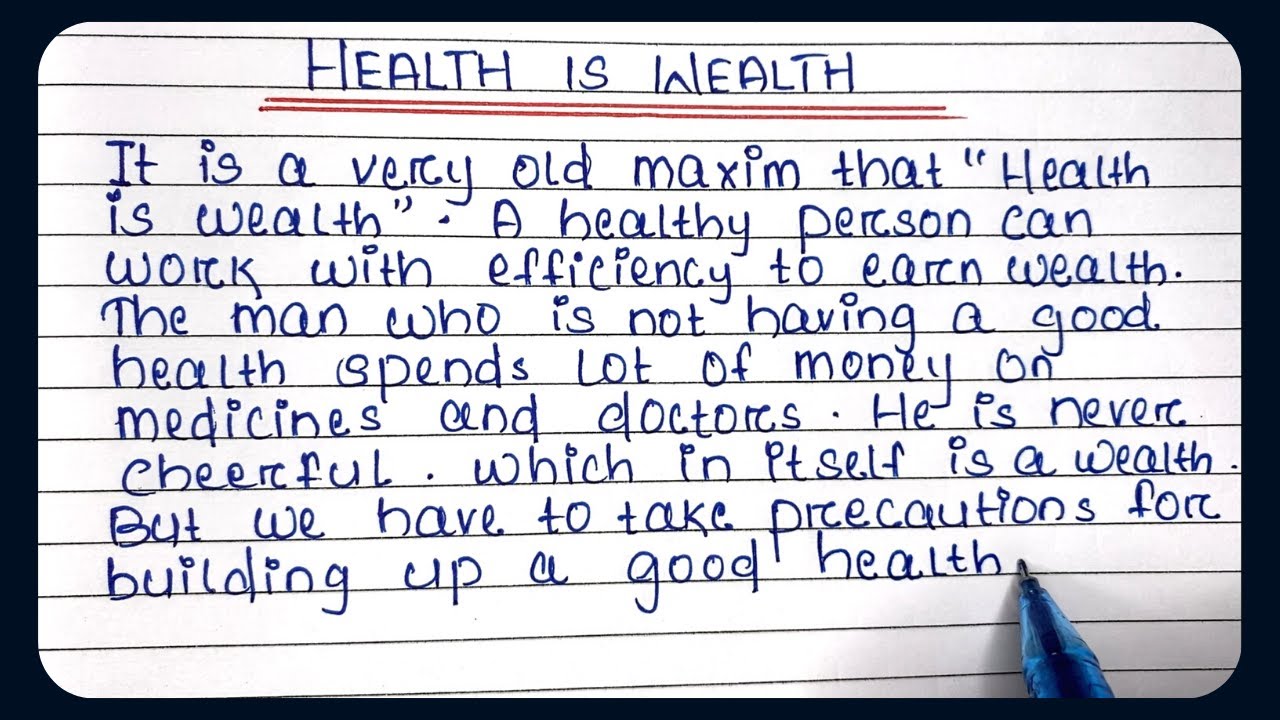 HEALTH IS WEALTH
It is a very old maxim that "Health
is wealth". A healthy person can
work with efficiency to earn wealth.
The man who is not having a good
health spends lot of money on
medicines and doctors. He is never
cheerful. which in itself is a wealth.
But we have to take precautions for
building up a good health.